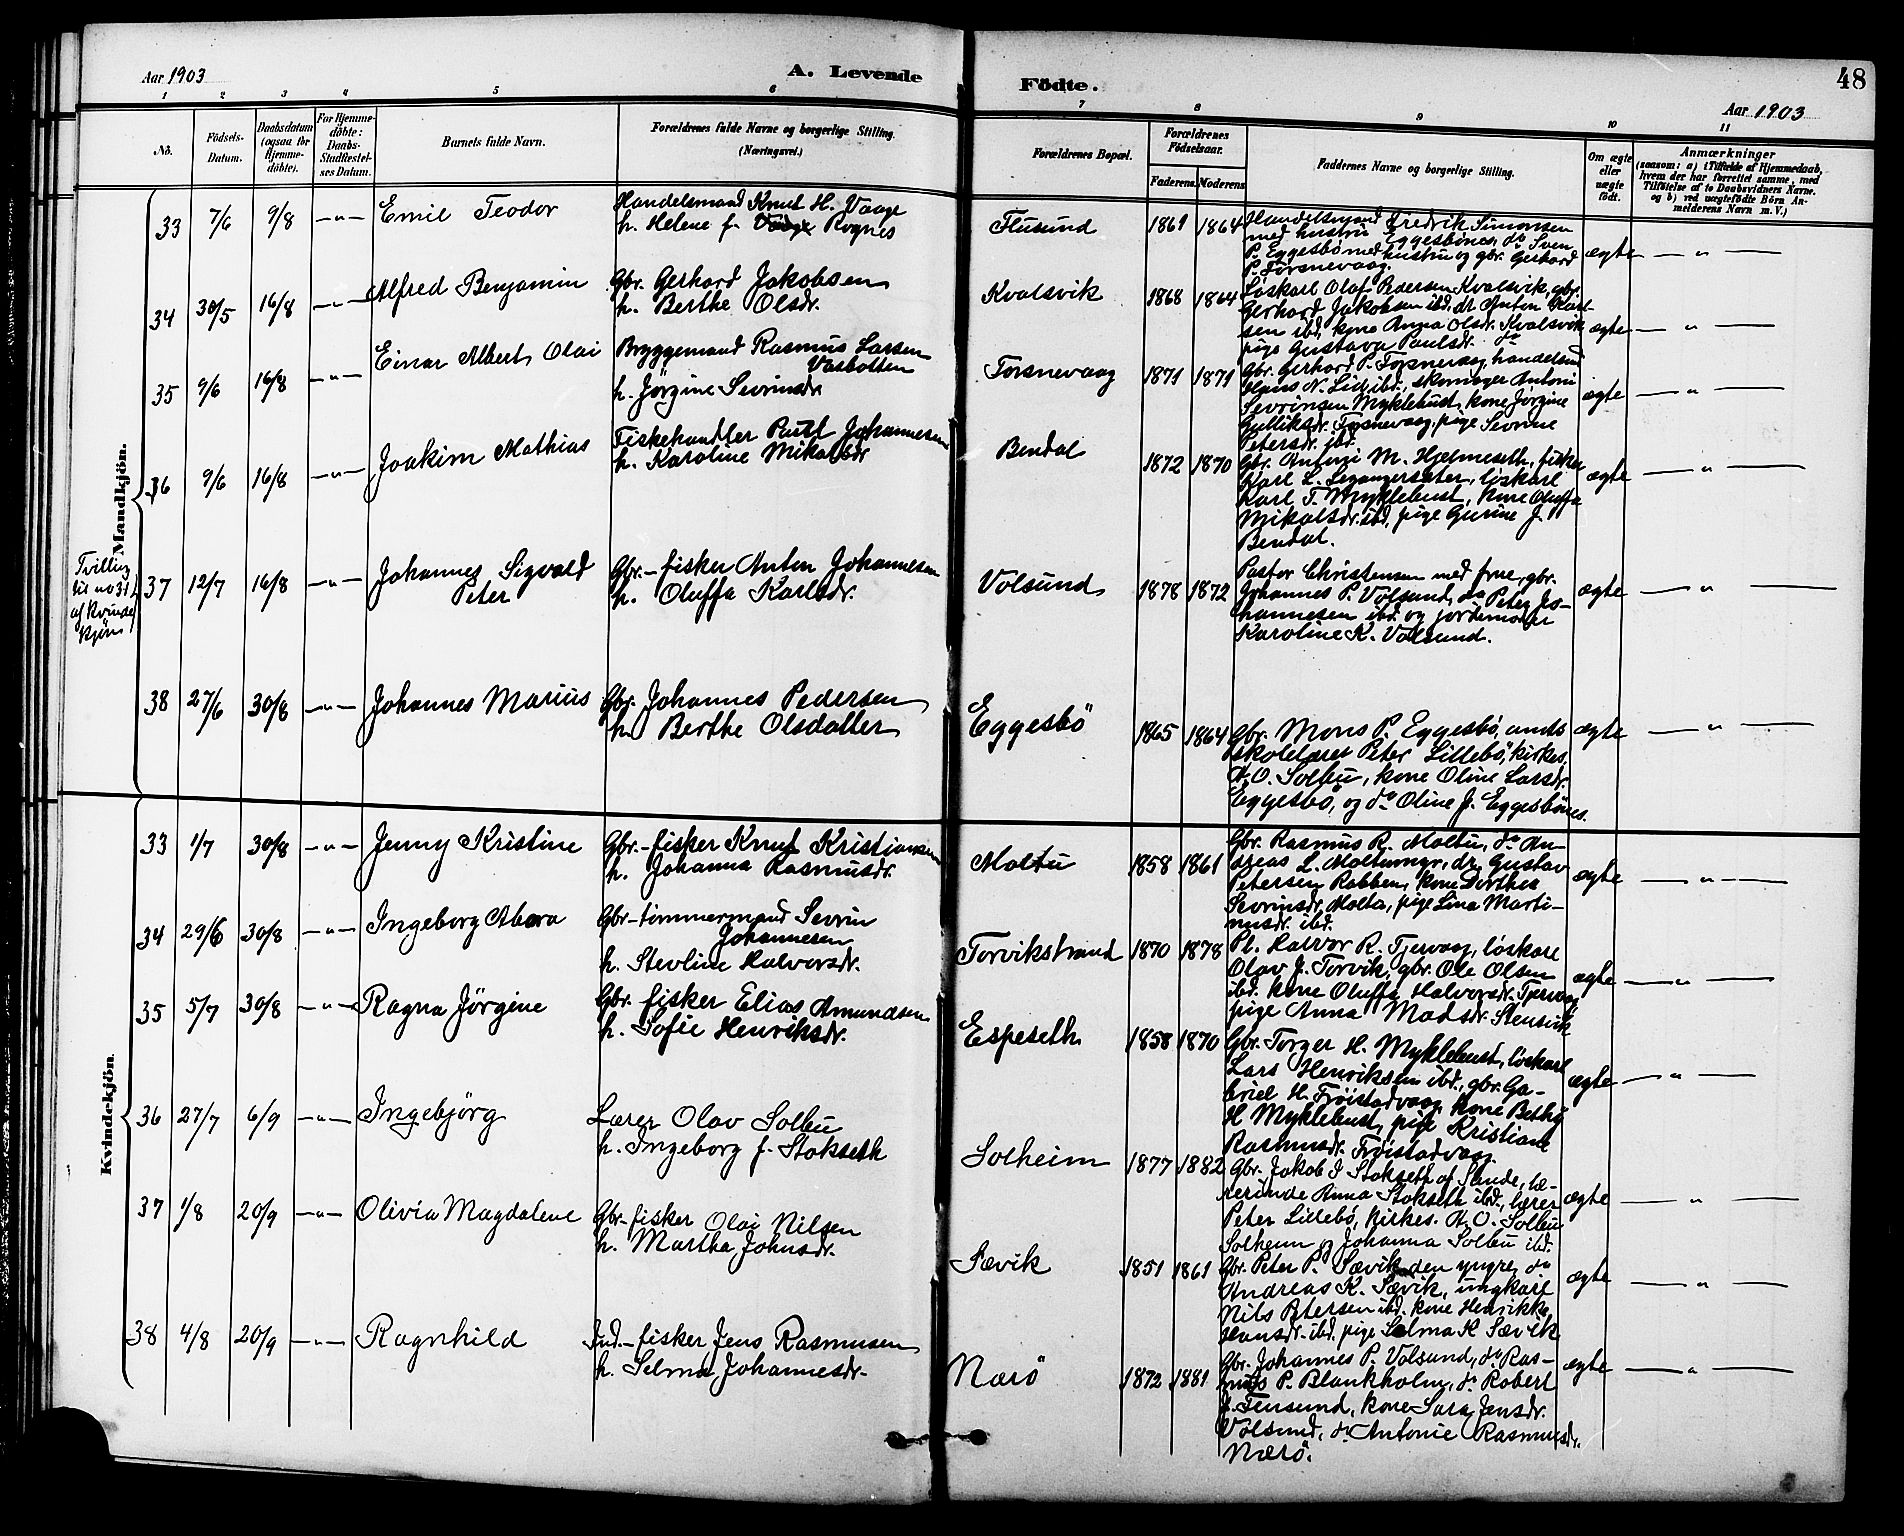 Aar 1903
A. Levende
Födte.
48
Aar 1903
1 2 3 4 5 6 7 8 9 10 11
No.
Födsels-Datum.
Daabsdatum (ogsaa for Hjemme-döbte).
For Hjemme-döbte: Daabs-Stadfæstel-ses Datum.
Barnets fulde Navn.
Forældrenes fulde Navne og borgerlige Stilling.
(Næringsvei.)
Forældrenes Bopæl.
Forældrenes Födselsaar.
Faderens. Moderens.
Faddernes Navne og borgerlige Stilling.
Om ægte eller uægte födt.
Anmærkninger
(saasom: a) i Tilfælde af Hjemmedaab, hvem der har forrettet samme, med Tilföielse af to Daabsvidners Navne. og b) ved uægtefödte Börn An-melderens Navn m. V.)
Mandkjön.
33 7/6 9/8 —"— Emil Teodor
Handelsmand Knut H. Vaage
h. Helene f. Vaage Rognes
Flusund 1861 1864
Handelsmand Fredrik Simonsen
med hustru Eggesbönes, do Sven
P. Eggesbö med hustru og gbr. Gerhard
P. Torsnevaag.
ægte — " —
34 30/5 16/8 —"— Alfred Benjamin
Gbr. Gerhard Jakobsen
h. Berthe Olsdr.
Kvalsvik 1868 1864
Löskarl Olaf Pedersen Kvalsvik, gbr.
Gerhard Jakobsen ibd. dr. Anton Karl-
sen ibd., kone Anna Olsdr. Kvalsvik
pige Gustava Paulsdr. do
ægte — " —
35 9/6 16/8 —"— Einar Albert Olai
Bryggemand Rasmus Larsen
Vasbotten
h. Jörgine Sevrinsdr
Torsnevaag 1871 1871
Gbr. Gerhard P. Torsnevaag, handelsm
Hans N. Lid, ibd., skomager Antoni
Sevrinsen Myklebust, kone Jörgine
Gulliksdr. Torsnevaag, pige Sevrine
Petersdr. ibd.
ægte — " —
36 9/6 16/8 —"— Joakim Mathias
Fiskehandler Paul Johannesen
h. Karoline Mikalsdr
Bendal 1872 1870
Gbr. Antoni M. Hjelmeseth, fisker
Karl L. Leganger sæter, löskarl
Karl T. Myklebust, kone Oluffa
Mikalsdr. ibd, pige Gurine J.
Bendal.
ægte — " —
Tvilling
til no 31
af kvinde
kjön
37 12/7 16/8 —"— Johannes Sigvald
Peter
Gbr.-fisker Anton Johannesen
h. Oluffa Karlsdr.
Volsund 1878 1872
Pastor Christensen med frue, gbr.
Johannes P. Volsund, do Peter Jo-
hannesen ibd. og jordemoder
Karoline K. Volsund.
ægte — " —
38 27/6 30/8 —"— Johannes Marius
Gbr. Johannes Pedersen
h. Berthe Olsdatter
Eggesbö 1865 1864
Gbr. Mons P. Eggesbö, amts
skolelærer Peter Lillebö, kirkes.
A. O. Solbu, kone Oline Larsdr.
Eggesbö, og do Oline J. Eggesbönes.
ægte — " —
Kvindekjön.
33 1/7 30/8 —"— Jenny Kristine
Gbr.-fisker Knut Kristiansen
h. Johanna Rasmusdr.
Moltu 1858 1861
Gbr. Rasmus R. Moltu, do An-
dreas L. Moltumyr, dr. Gustav
Petersen Rabben, kone Dorthea
Sevrinsdr. Molta, pige Lina Marti-
nusdr. ibd.
ægte — " —
34 29/6 30/8 —"— Ingeborg
Gbr-tömmermand Sevrin
Johannesen
h. Stevline Halvorsdr.
Torvikstrand 1870 1878
Pl. Halvor R. Tjervaag, löskarl
Olav J. Torvik, gbr. Ole Olsen
ibd. kone Oluffa Halvorsdr. Tjervaag
pige Anna Madsdr. Stensvik
ægte — " —
35 5/7 30/8 —"— Ragna Jörgine
Gbr. fisker Elias Amundsen
h. Sofie Henriksdr.
Espeseth 1858 1870
Gbr. Torger H. Myklebust, löskarl
Lars Henriksen ibd., gbr. Ga-
briel H. Fröistadvaag, kone Bethy
H Myklebust, pige Kristiane
Rasmusdr. Fröistadvaag
ægte — " —
36 27/7 6/9 —"— Ingebjörg
Lærer Olav Solbu
h. Ingeborg f. Stokseth
Solheim 1877 1882
Gbr. Jakob J Stokseth af Sande, læ-
rerinde Anna Stokseth ibd., lærer
Peter Lillebö, kirkes. A. O. Solbu
Solheim og Johanna Solbu ibd.
ægte — " —
37 1/8 20/9 —"— Olivia Magdalene
Gbr-fisker Olai Nilsen
h. Marthe Johnsdr.
Sævik 1851 1861
Gbr. Peter P. Sævik den yngre, do
Andreas K. Sævik, ungkarl
Nils Petersen ibd. kone Henrikke
Hansdr. ibd. pige Selma K Sævik
ægte — " —
38 4/8 20/9 —"— Ragnhild
Ind-fisker Jens Rasmusen
h. Selma Johannesdr-
Nærö 1872 1881
Gbr. Johannes P. Volsund, do Ras-
mus P. Blankholm, do Robert
J. Flusund, kone Sara Jensdr.
Volsund, do Antonie Rasmusdr.
Nærö.
ægte — " —